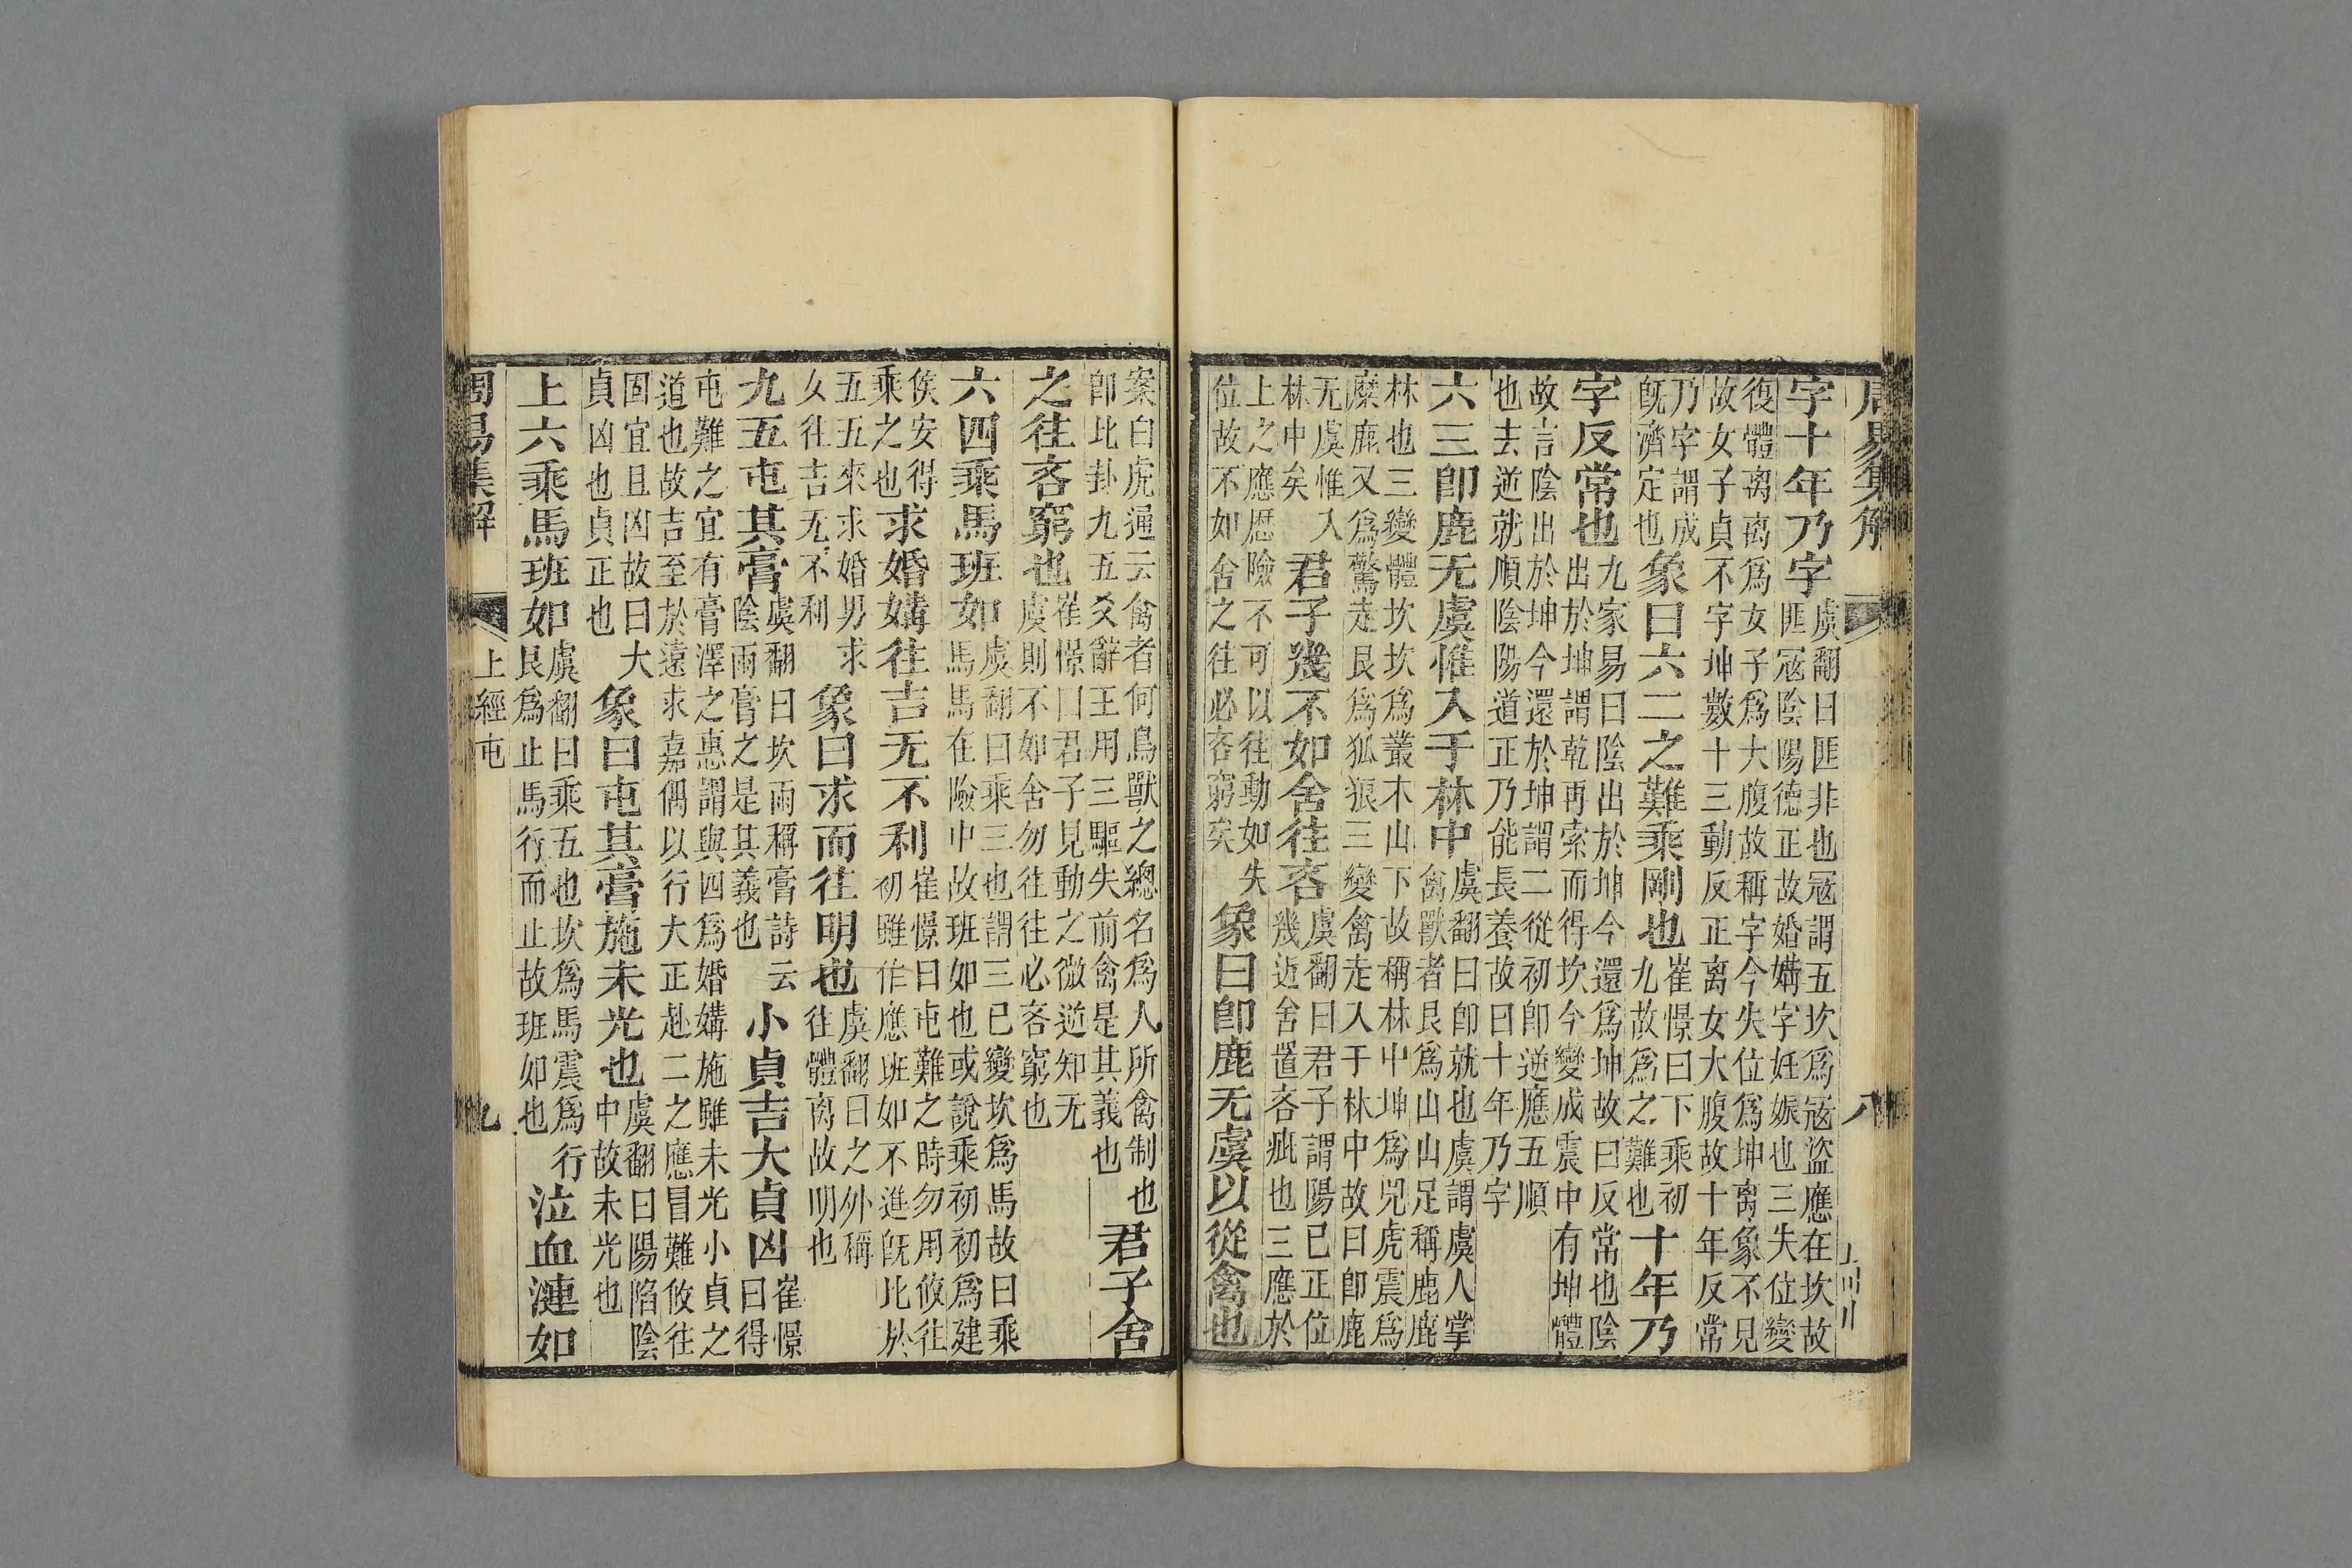 周易集解 八
字十年乃字虞翻曰匪非也寇謂五坎爲寇盜應在坎故匪寇陰陽德正故婚媾字妊娠也三失位變
復體离离爲女子爲大腹故稱字今失位爲坤离象不見故女子貞不字坤數十三動反正离女大腹故十年反常
乃字謂成既濟定也象曰六二之難乘剛也崔憬曰下乘初九故爲之難也十年乃
字反常也九家易曰陰出於坤今還爲坤故曰反常也陰出於坤謂乾再索而得坎今變成震中有坤體
故言陰出於坤今還於坤謂二從初卽逆應五順也去逆就順陰陽道正乃能長養故曰十年乃字
六三卽鹿无虞惟入于林中虞翻曰卽就也虞謂虞人掌禽獸者艮爲山山足稱鹿鹿
林也三變體坎坎爲叢木山下故稱林中坤爲兕虎震爲麋鹿又爲驚走艮爲狐狼三變禽走入于林中故曰卽鹿
无虞惟入林中矣君子幾不如舍往吝虞翻曰君子謂陽已正位幾近舍置吝疵也三應於
上之應歷險不可以往動如失位故不如舍之往必吝窮矣象曰卽鹿无虞以從禽也
案白虎通云禽者何鳥獸之總名爲人所禽制也卽比卦九五爻辭王用三驅失前禽是其義也君子舍
之往吝窮也崔憬曰君子見動之微逆知无虞則不如舍勿往往必吝窮也
六四乘馬班如虞翻曰乘三也謂三已變坎爲馬故曰乘馬馬在險中故班如也或說乘初初爲建
侯安得乘之也求婚媾往吉无不利崔憬曰屯難之時勿用攸往初雖作應班如不進旣比於
五五來求婚男求女往吉无不利象曰求而往明也虞翻曰之外稱往體离故明也
九五屯其膏虞翻曰坎雨稱膏詩云陰雨膏之是其義也小貞吉大貞凶崔憬曰得
屯難之宜有膏澤之惠謂與四爲婚媾施雖未光小貞之道也故吉至於遠求嘉偶以行大正赴二之應冒難攸往
固宜且凶故曰大貞凶也貞正也象曰屯其膏施未光也虞翻曰陽陷陰中故未光也
上六乘馬班如虞翻曰乘五也坎爲馬震爲行艮爲止馬行而止故班如也泣血漣如
周易集解 上經屯 九